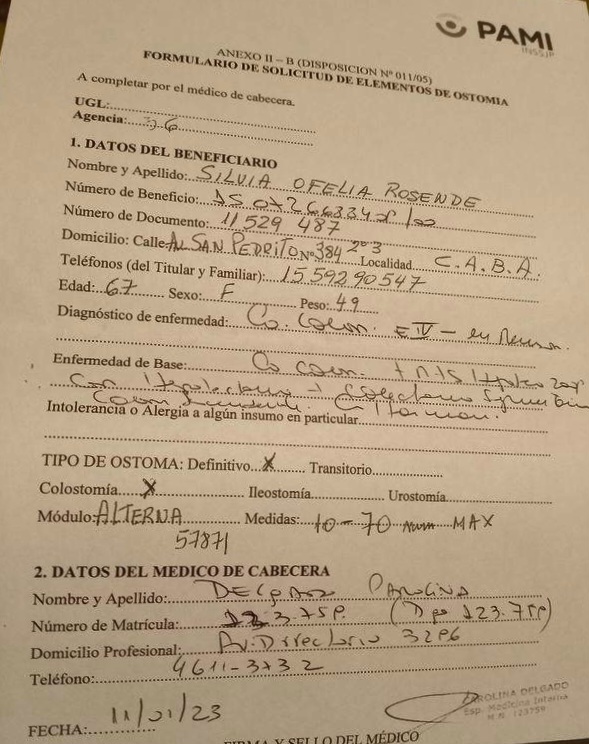 PAMI
INSSJP
ANEXO II – B (DISPOSICION Nº 011/05)
FORMULARIO DE SOLICITUD DE ELEMENTOS DE OSTOMIA
A completar por el médico de cabecera.
UGL:
Agencia: 36
1. DATOS DEL BENEFICIARIO
Nombre y Apellido: SILVIA OFELIA ROSENDE
Número de Beneficio:
Número de Documento: 11 529 487
Domicilio: Calle: AL SAN PEDRITO Nº 384 2º 3 Localidad C.A.B.A.
Teléfonos (del Titular y Familiar): 15 592 90547
Edad: 67 Sexo: F Peso: 49
Diagnóstico de enfermedad: Ca. Colon. E IV – en
Enfermedad de Base: Ca colon
con
Intolerancia o Alergia a algún insumo en particular
TIPO DE OSTOMA: Definitivo X Transitorio
Colostomía X Ileostomía Urostomía
Módulo: ALTERNA Medidas: 10-70 mm MAX
57871
2. DATOS DEL MEDICO DE CABECERA
Nombre y Apellido: DELGADO CAROLINA
Número de Matrícula:
Domicilio Professional: Av. Directorio
Teléfono: 4611-3732
CAROLINA DELGADO
Esp. Medicina Interna
M.N. 123759
FECHA: 11/01/23
FIRMA Y SELLO DEL MÉDICO